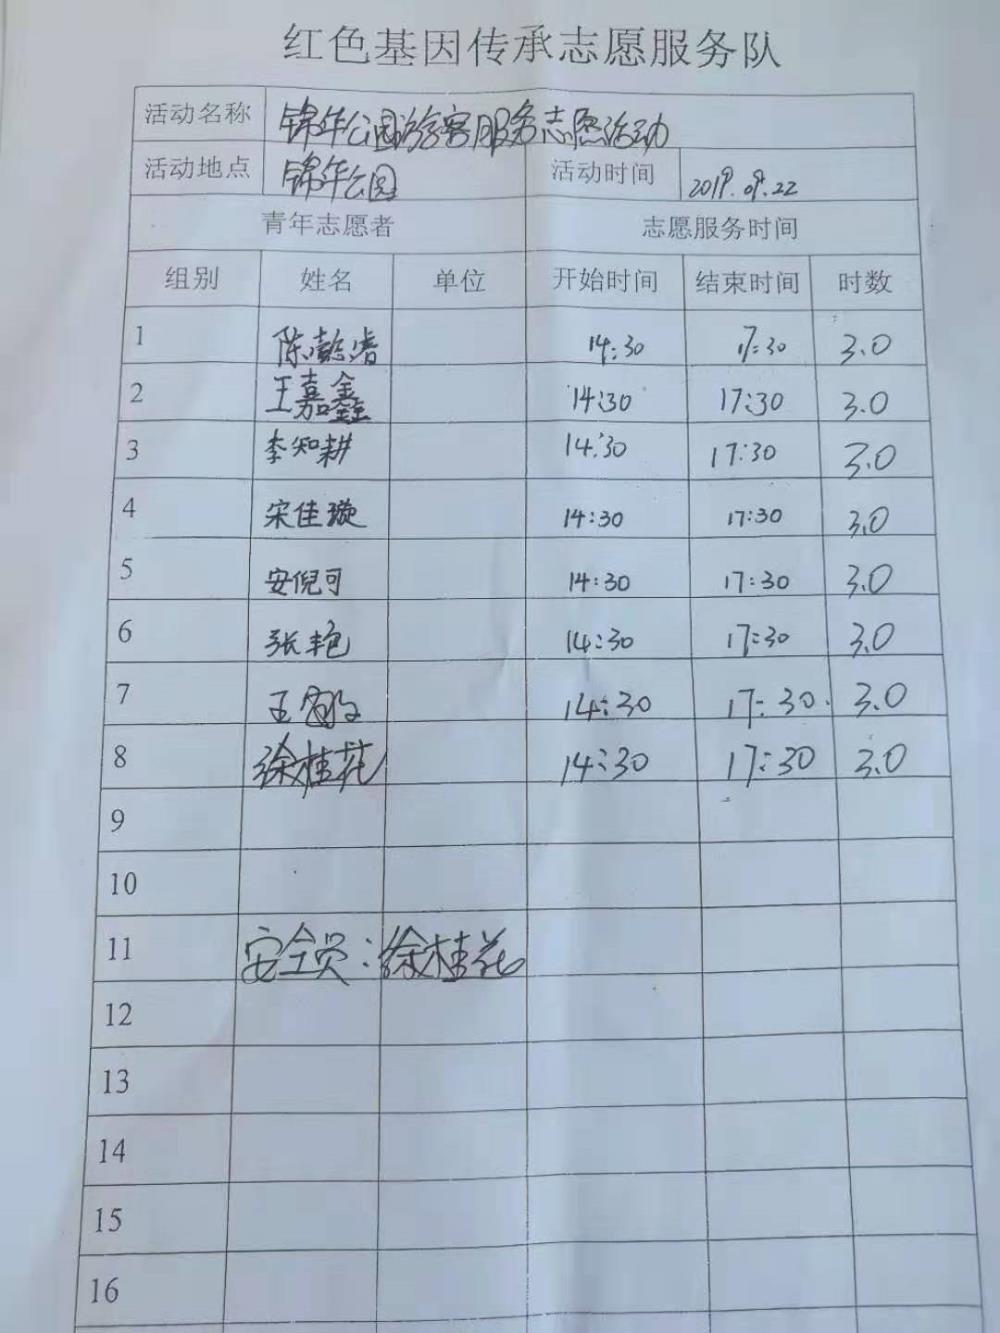 红色基因传承志愿服务队
活动名称 锦华公园游客服务志愿活动
活动地点 锦华公园 活动时间 2019.09.22
青年志愿者 志愿服务时间
组别 姓名 单位 开始时间 结束时间 时数
1 陈懿睿 14:30 17:30 3.0
2 王嘉鑫 14:30 17:30 3.0
3 李知耕 14:30 17:30 3.0
4 宋佳璇 14:30 17:30 3.0
5 安倪可 14:30 17:30 3.0
6 张艳 14:30 17:30 3.0
7 王 14:30 17:30 3.0
8 徐桂花 14:30 17:30 3.0
9
10
11 安全员：徐桂花
12
13
14
15
16